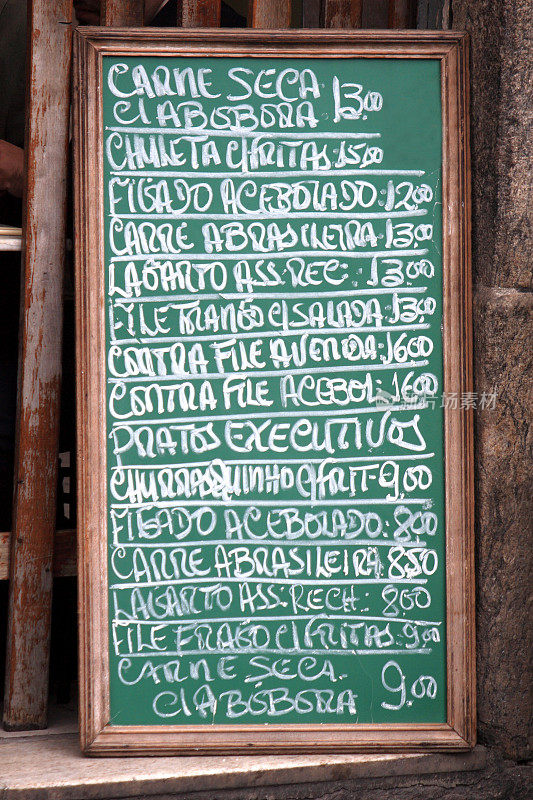 CARNE SECA 13.00
C/ABOBORA
CHULETA C/FRITAS 15.00
FIGADO ACEBOLADO. 12.00
CARRE ABRASILEIRA. 13.00
LAGARTO ASS. REC: 13.00
FILE FRANGO C/SALADA. 13.00
CONTRA FILE AVENIDA. 16.00
CONTRA FILE ACEBOL. 16.00
PRATOS EXECUTIVO
CHURRASQUINHO C/FRIT= 9.00
FIGADO ACEBOLADO. 8.00
CARRE ABRASILEIRA. 8.50
LAGARTO ASS. RECH. 8.00
FILE FRAGO C/FRITAS. 9.00
CARNE SECA. 9.00
C/ABOBORA
iStock